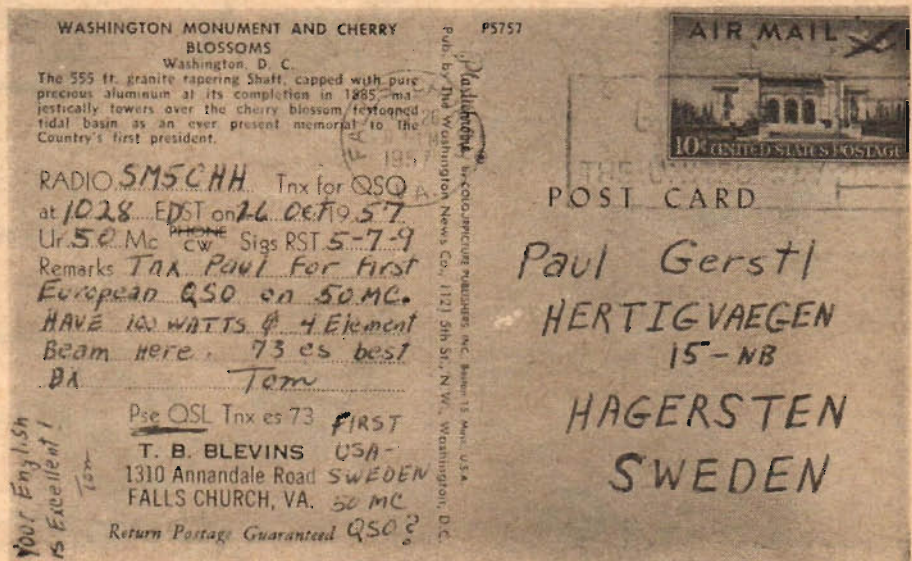 WASHINGTON MONUMENT AND CHERRY
BLOSSOMS
Washington, D. C.
The 555 ft. granite tapering Shaft, capped with pure
precious aluminum at its completion in 1885, ma-
jestically towers over the cherry blossom festooned
tidal basin as an ever present memorial to the
Country's first president.
RADIO SM5CHH Tnx for QSO
at 1028 EDST on 26 OCT 1957
Ur 50 Mc PHONE CW Sigs RST 5-7-9
Remarks Tnx Paul For First
European QSO on 50 MC.
HAVE 100 WATTS & 4 Element
Beam Here. 73 es best
DX Tom
Pse QSL Tnx es 73
T. B. BLEVINS
1310 Annandale Road
FALLS CHURCH, VA.
Return Postage Guaranteed
FIRST
USA-
SWEDEN
50 MC
QSO?
Your English
is Excellent!
Tom
Pub. by The Washington News Co., 1121 5th St., N.W., Washington, D.C.
Plastichrome by COLOURPICTURE PUBLISHERS, INC. Boston 15, Mass., U.S.A.
P5757
1957
AIR MAIL
10¢ UNITED STATES POSTAGE
POST CARD
Paul Gerstl
HERTIGVAEGEN
15-NB
HAGERSTEN
SWEDEN